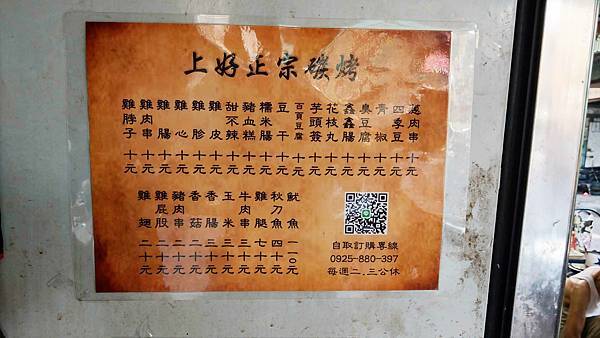 上好正宗碳烤
雞脖子 十元
雞肉串 十元
雞腸 十元
雞心 十元
雞胗 十元
雞皮 十元
甜不辣 十元
豬血糕 十元
糯米腸 十元
豆干 十元
百頁豆腐 十元
芋頭簽 十元
花枝丸 十元
鑫鑫腸 十元
臭豆腐 十元
青椒 十元
四季豆 十元
蔥肉串 十元
雞翅 二十元
雞屁股 二十元
豬肉串 二十元
香菇 二十元
香腸 三十元
玉米 三十元
牛肉串 三十元
雞腿 七十元
秋刀魚 四十元
魷魚 一一○元
自取訂購專線
0925-880-397
每週二.三公休